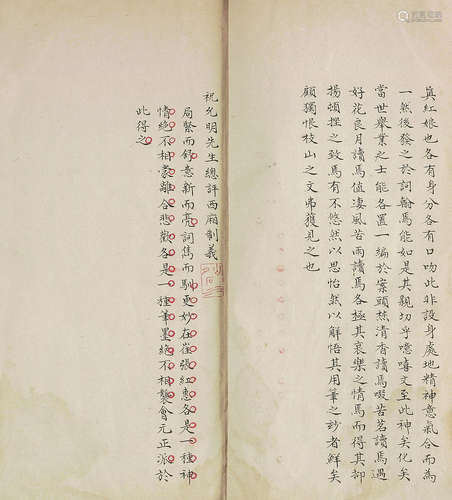 真紅娘也各有身分各有口吻此非設身處地精神意氣合而為
一然後發之於詞翰焉能如是其親切乎噫嘻文至此神矣化矣
當世舉業之士能各置一編於案頭爇清香讀焉啜苦茗讀焉遇
好花良月讀焉値凄風苦雨讀焉各極其哀樂之情焉而得其抑
揚頓挫之致焉有不悠然以思怡然以解悟其用筆之妙者鮮矣
顧獨恨枝山之文弗獲見之也
祝允明先生總評西廂制義
局緊而舒意新而亮詞雋而馴更妙在崔張紅惠各是一種神
情絕不相蒙離合悲歡各是一種筆墨絕不相襲會元正派於
此得之